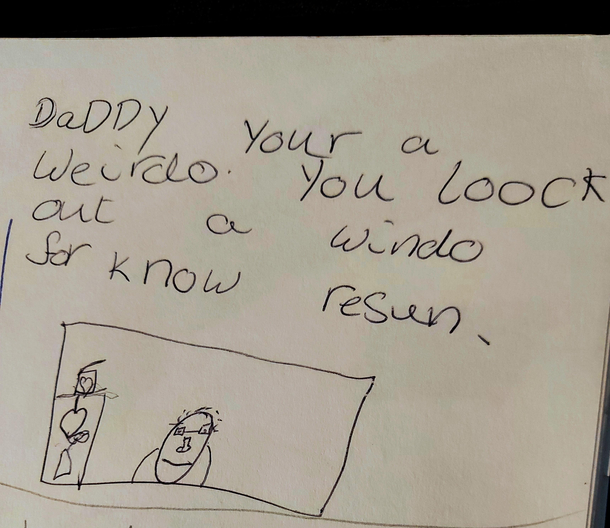 DaDDy your a
weirdo. You loock
out a windo
for know
resun.